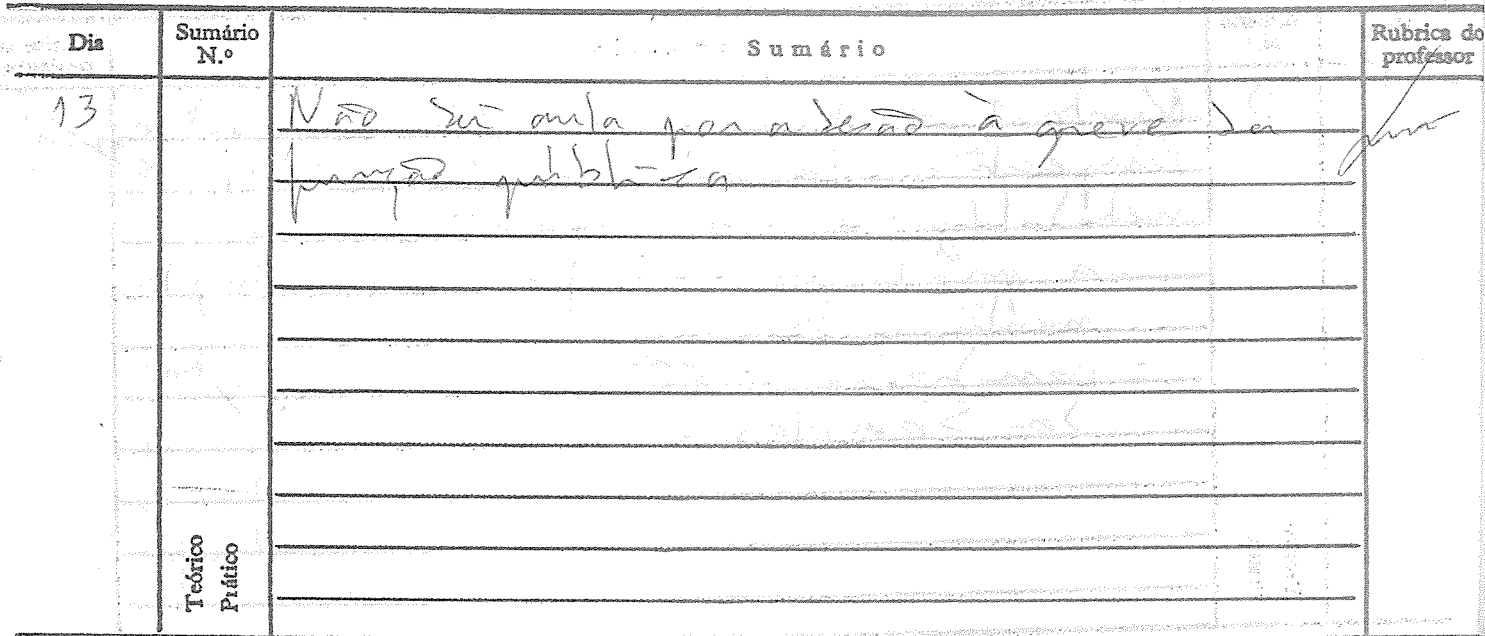 Dia Sumário N.º Sumário Rubrica do professor
13 Não dei aula por adesão à greve da
função pública
Teórico
Prático